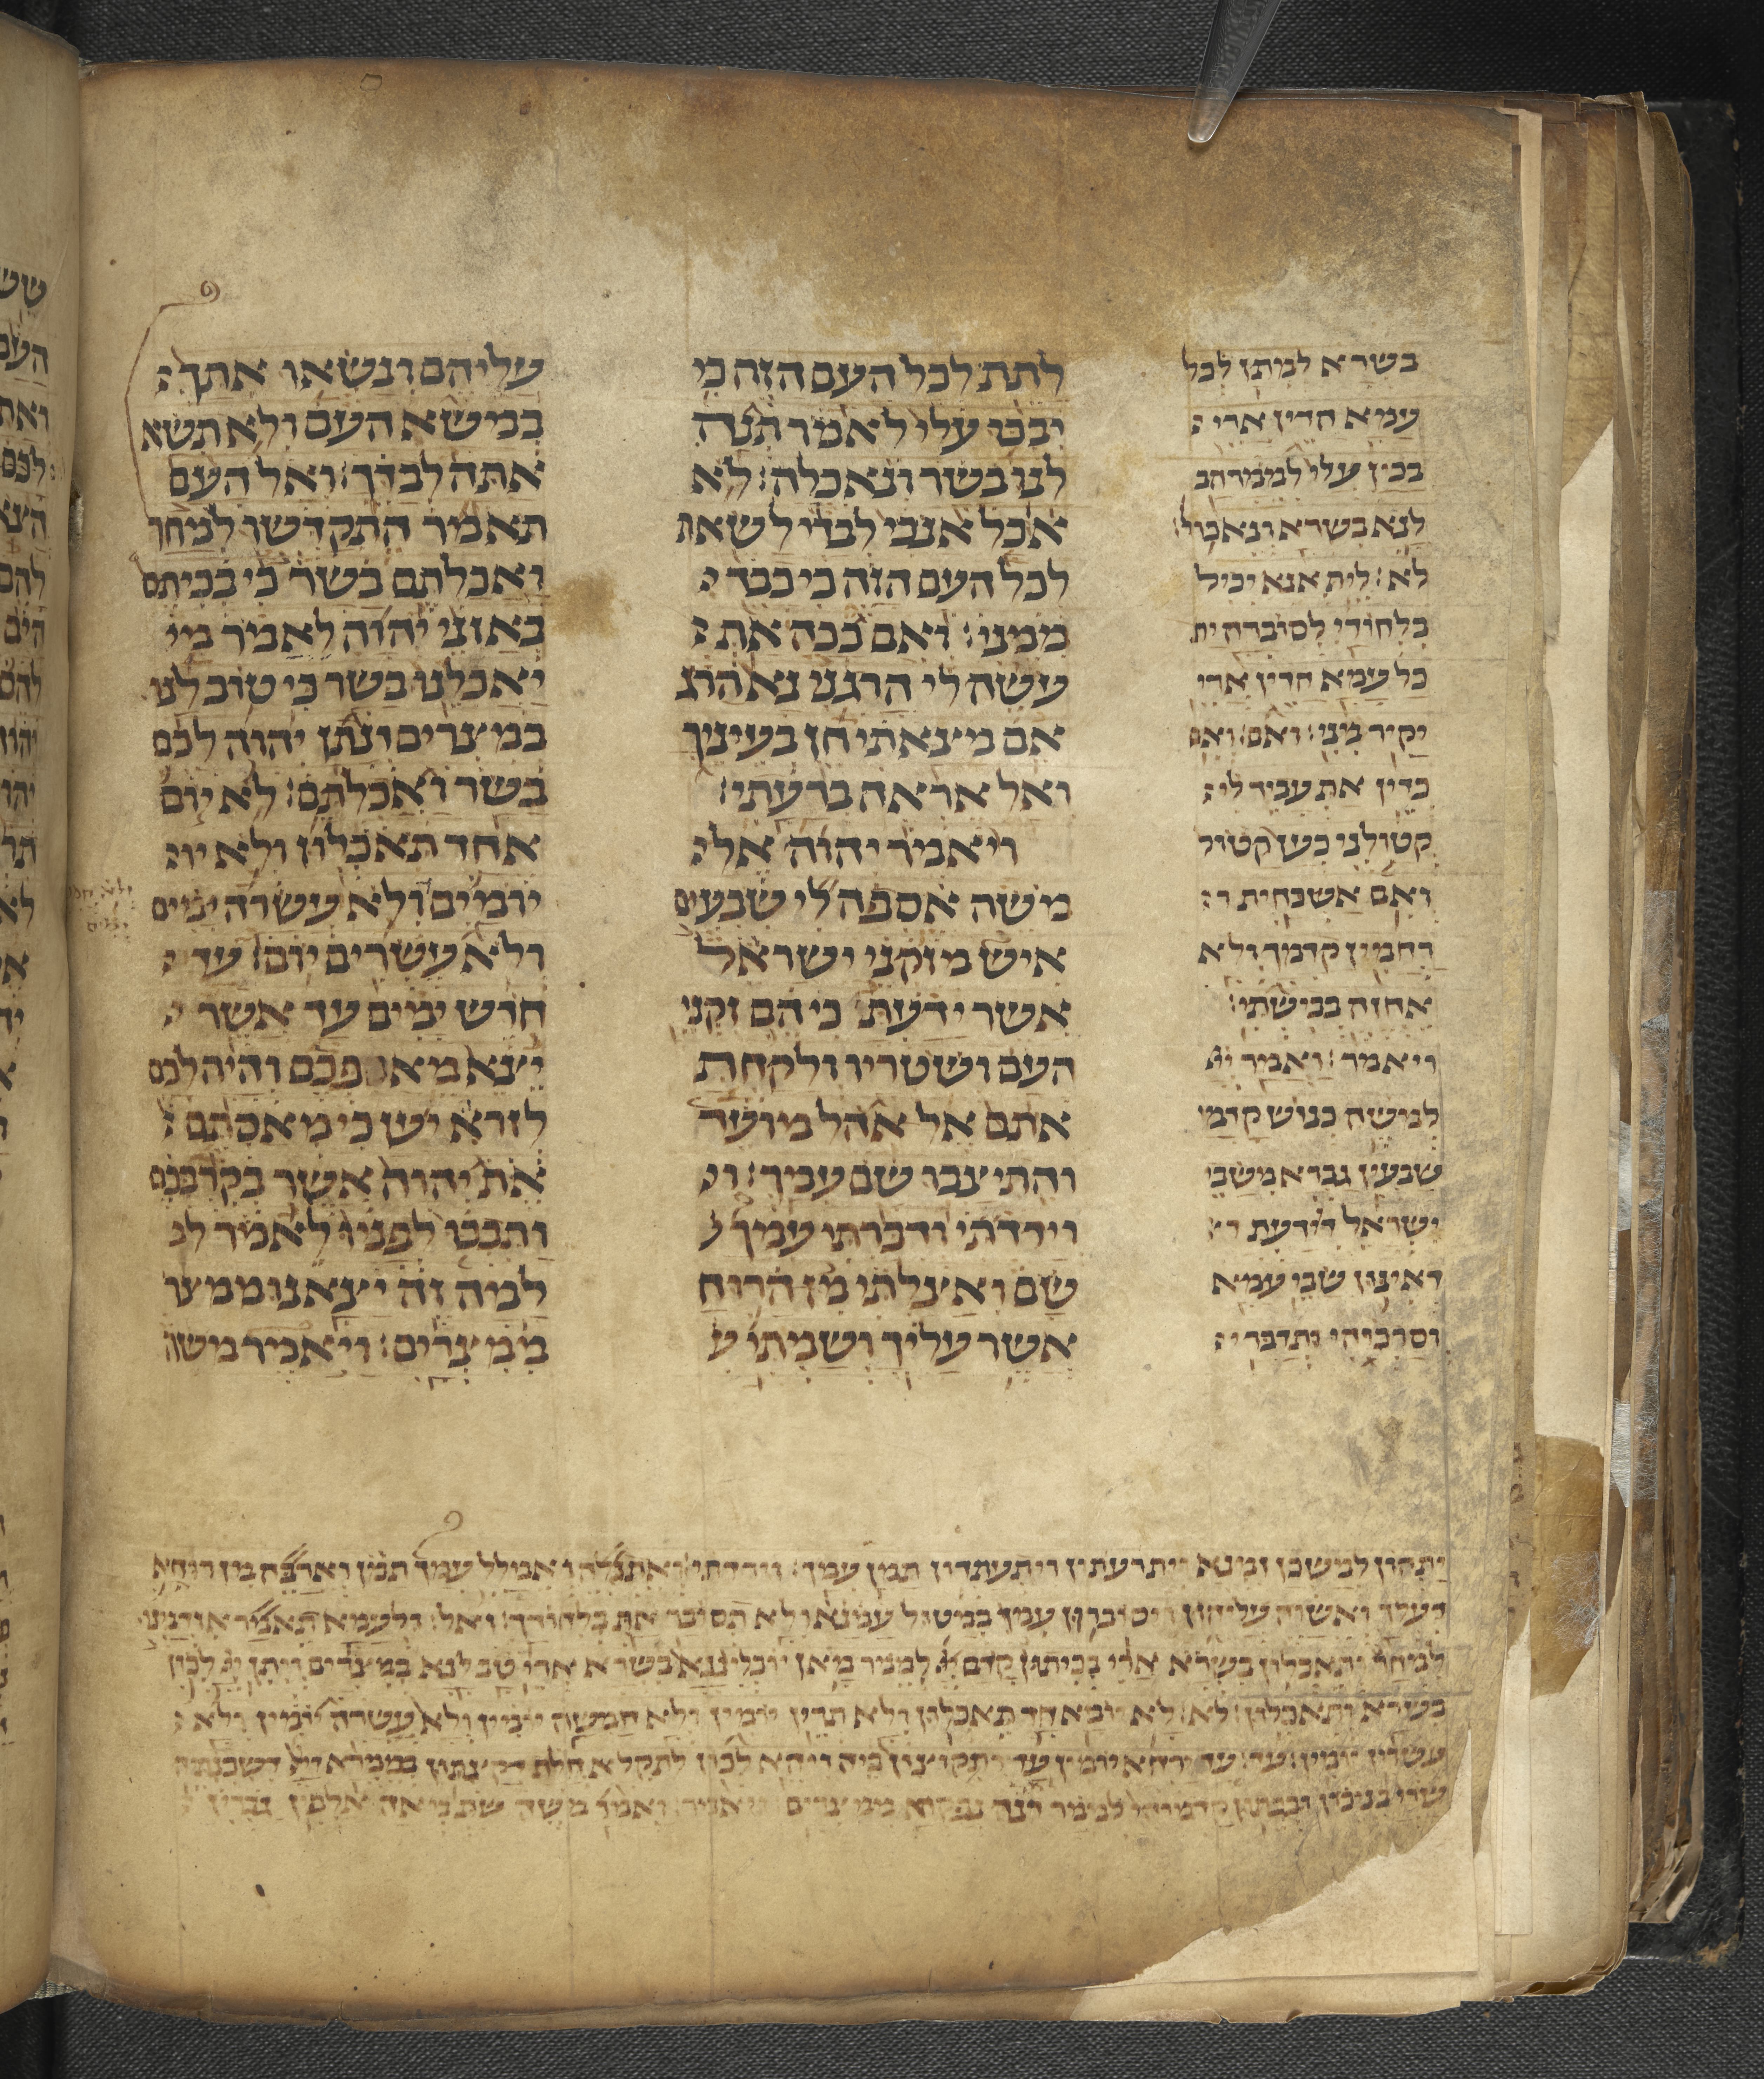 בשרא למתן לכל
עמא הדין ארי
בכין עלי למימר הב
לנא בשרא ונאכול
לא: לית אנא יכיל
בלחודי לסוברה ית
כל עמא הדין ארי
יקיר מיני: ואם: ואם
כדין את עביד לי
קטולני כען קטול
ואם אשכחית ר
רחמין קדמך ולא
אחזה בבישתי:
ויאמר: ואמר יי
למשה כנוש קדמי
שבעין גברא מסבי
ישראל דידעת ד
דאינון סבי עמא
וסרכוהי ותדבר י
לתת לכל העם הזה כי
יבכו עלי לאמר תנה
לנו בשר ונאכלה: לא
אוכל אנכי לבדי לשאת
לכל העם הזה כי כבד
ממני: ואם ככה את
עשה לי הרגני נא הרג
אם מצאתי חן בעיניך
ואל אראה ברעתי:
ויאמר יהוה אל
משה אספה לי שבעים
איש מזקני ישראל
אשר ידעת כי הם זקני
העם ושטריו ולקחת
אתם אל אהל מועד
והתיצבו שם עמך: ו
וירדתי ודברתי עמך
שם ואצלתי מן הרוח
אשר עליך ושמתי ע
עליהם ונשאו אתך
במשא העם ולא תשא
אתה לבדך: ואל העם
תאמר התקדשו למחר
ואכלתם בשר כי בכיתם
באזני יהוה לאמר מי
יאכלנו בשר כי טוב לנו
במצרים ונתן יהוה לכם
בשר ואכלתם: לא יום
אחד תאכלון ולא יו
יומים ולא עשרה ימים
ולא עשרים יום: עד
חדש ימים עד אשר
יצא מאפכם והיה לכם
לזרא יען כי מאסתם
את יהוה אשר בקרבכם
ותבכו לפניו לאמר ל
למה זה יצאנו ממצ
ממצרים: ויאמר משה
יתהון למשכן זמנא ויתעתדון תמן עמך: וירדתי: ואתגלי ואמלל עמך תמן וארבי מן רוחא
דעלך ואשוי עליהון ויסוברון עמך במטול עמא ולא תסובר את בלחודך: ואל: ולעמא תאמר אזדמינו
למחר ותאכלון בשרא ארי בכיתון קדם יי למימר מאן יוכלננא בשרא ארי טב לנא במצרים ויתן יי לכון
בשרא ותאכלון: לא: לא יומא חד תאכלון ולא תרין יומין ולא חמשה יומין ולא עשרה יומין ולא
עשרין יומין: עד: עד ירח יומין עד דתקוצון ביה ויהא לכון לתקלא חלף דקצתון במימרא דיי דשכנתיה
שריא ביניכון ובכיתון קדמוהי למימר דנן נפקנא ממצרים: ויאמר: ואמר משה שת מאה אלפין גברין